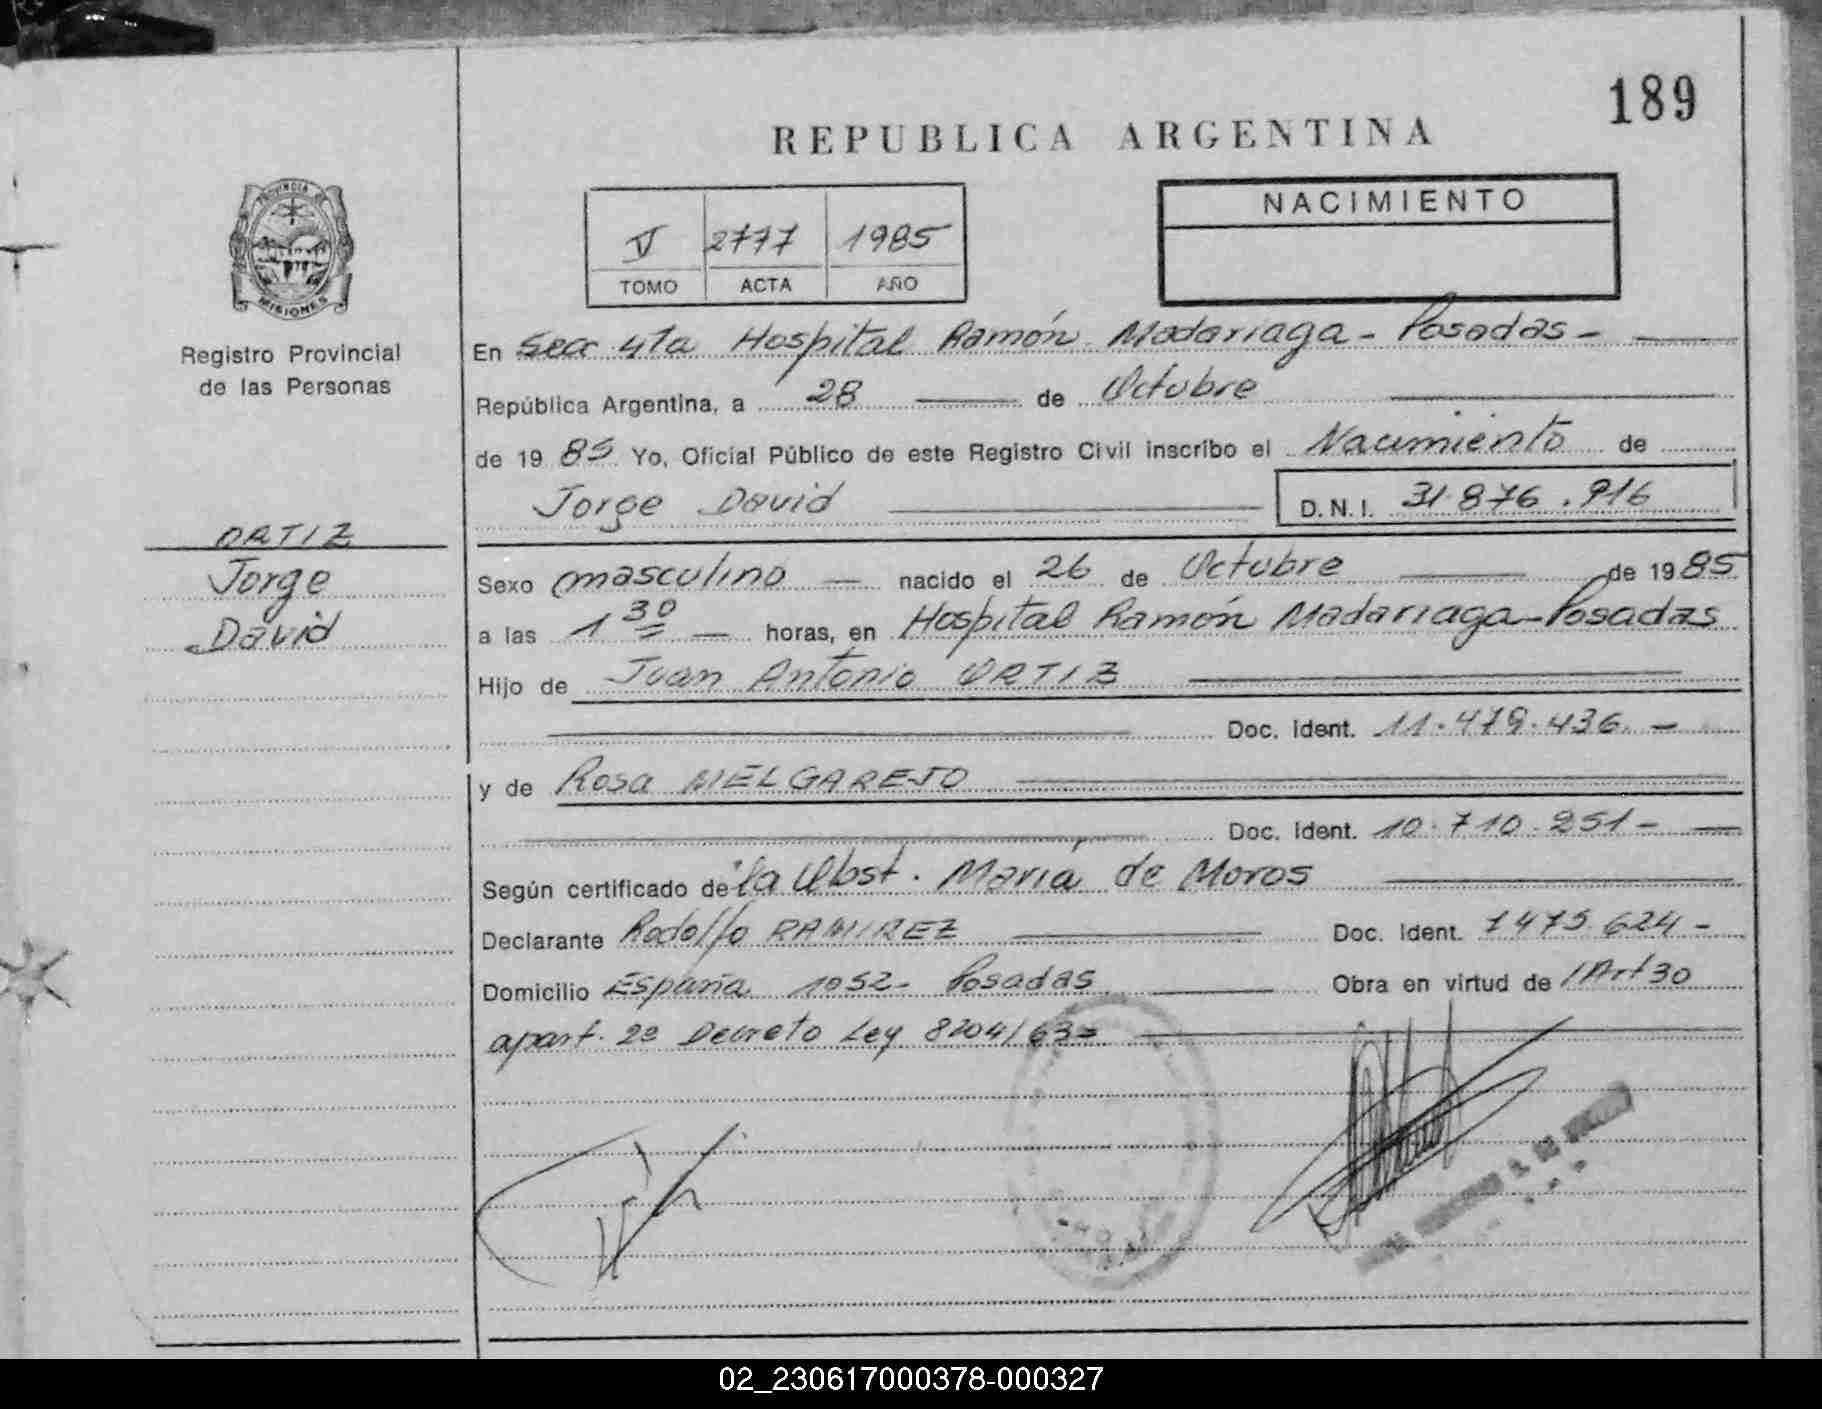 189
REPUBLICA ARGENTINA
PROVINCIA DE
MISIONES
Registro Provincial
de las Personas
V 2777 1985
TOMO ACTA AÑO
NACIMIENTO
En Secc 4ta Hospital Ramón Madariaga - Posadas -
República Argentina, a 28 de Octubre
de 1985 Yo, Oficial Público de este Registro Civil inscribo el Nacimiento de
Jorge David D.N.I. 31.876.916
ORTIZ
Jorge
David
Sexo masculino nacido el 26 de Octubre de 1985
a las 1 30 horas, en Hospital Ramón Madariaga - Posadas
Hijo de Juan Antonio ORTIZ
Doc. Ident. 11.479.436. -
y de Rosa MELGAREJO
Doc. Ident. 10.710.251 -
Según certificado de la Obst. María de Moros
Declarante Rodolfo RAMIREZ Doc. Ident. 7475.624 -
Domicilio España 1052 - Posadas Obra en virtud de /Art 30
apart. 2º Decreto Ley 8204/63=
02_230617000378-000327